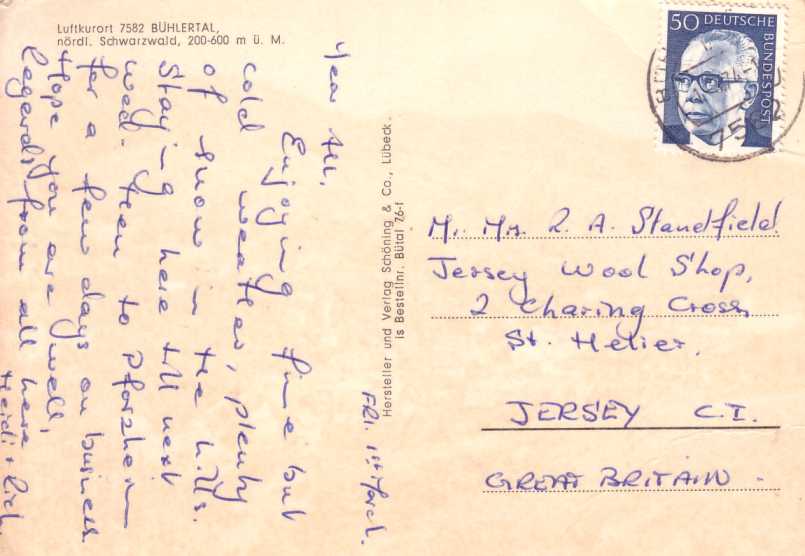 Luftkurort 7582 BÜHLERTAL,
nördl. Schwarzwald, 200-600 m ü. M.
FRI. 1st March.
Dear All,
Enjoying fine but
cold weather, plenty
of snow in the hills.
Staying here till next
wed. then to Pforzheim
for a few days on business
Hope you are well,
Regards from all here
Heidi + Rich.
Hersteller und Verlag Schöning & Co., Lübeck.
Is Bestellnr. Bütal 76-f
50 DEUTSCHE
BUNDESPOST
Mr. Mrs. R. A. Standfield.
Jersey Wool Shop,
2 Charing Cross,
St. Helier,
JERSEY C.I.
GREAT BRITAIN.